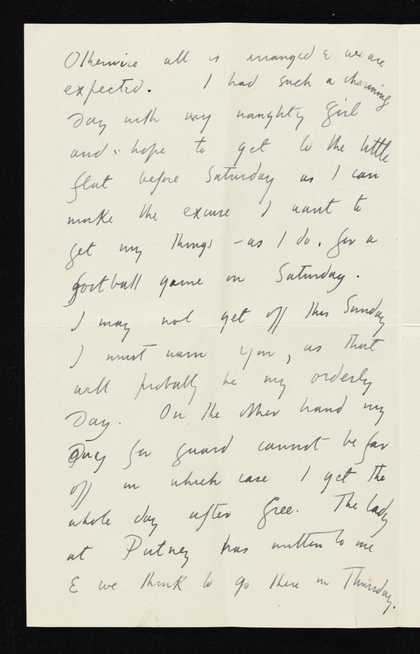 Otherwise all is arranged & we are
expected. I had such a charming
Day with my naughty girl
and i hope to get to the little
flat before Saturday as I can
make the excuse I want to
get my things - as I do, for a
football game on Saturday.
I may not get off this Sunday
I must warn you, as that
will probably be my orderly
Day. On the other hand my
for guard cannot be far
off in which case I get the
whole day after free. The lady
at Putney has written to me
& we think to go there on Thursday.